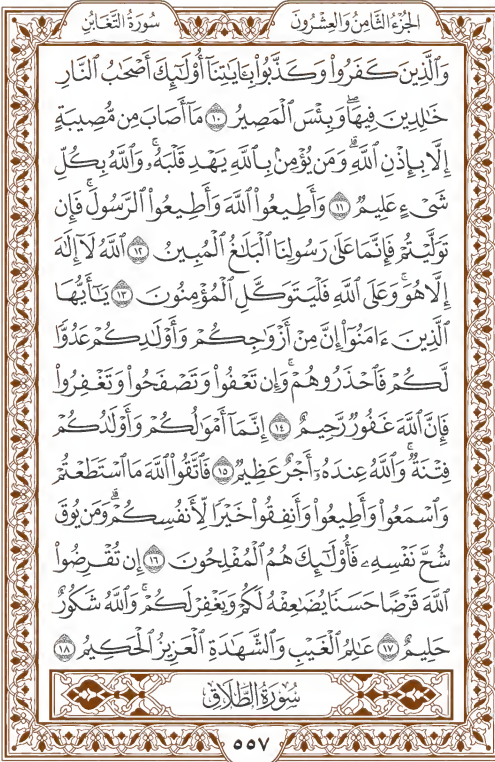 الجُزْءُ الثَّامِنُ وَالعِشْرُونَ سُورَةُ التَّغَابُنِ
وَٱلَّذِينَ كَفَرُوا۟ وَكَذَّبُوا۟ بِـَٔايَـٰتِنَآ أُو۟لَـٰٓئِكَ أَصْحَـٰبُ ٱلنَّارِ
خَـٰلِدِينَ فِيهَا ۖ وَبِئْسَ ٱلْمَصِيرُ ١٠ مَآ أَصَابَ مِن مُّصِيبَةٍ
إِلَّا بِإِذْنِ ٱللَّهِ ۗ وَمَن يُؤْمِنۢ بِٱللَّهِ يَهْدِ قَلْبَهُۥ ۚ وَٱللَّهُ بِكُلِّ
شَىْءٍ عَلِيمٌ ١١ وَأَطِيعُوا۟ ٱللَّهَ وَأَطِيعُوا۟ ٱلرَّسُولَ ۚ فَإِن
تَوَلَّيْتُمْ فَإِنَّمَا عَلَىٰ رَسُولِنَا ٱلْبَلَـٰغُ ٱلْمُبِينُ ١٢ ٱللَّهُ لَآ إِلَـٰهَ
إِلَّا هُوَ ۚ وَعَلَى ٱللَّهِ فَلْيَتَوَكَّلِ ٱلْمُؤْمِنُونَ ١٣ يَـٰٓأَيُّهَا
ٱلَّذِينَ ءَامَنُوٓا۟ إِنَّ مِنْ أَزْوَٰجِكُمْ وَأَوْلَـٰدِكُمْ عَدُوًّا
لَّكُمْ فَٱحْذَرُوهُمْ ۚ وَإِن تَعْفُوا۟ وَتَصْفَحُوا۟ وَتَغْفِرُوا۟
فَإِنَّ ٱللَّهَ غَفُورٌ رَّحِيمٌ ١٤ إِنَّمَآ أَمْوَٰلُكُمْ وَأَوْلَـٰدُكُمْ
فِتْنَةٌ ۚ وَٱللَّهُ عِندَهُۥٓ أَجْرٌ عَظِيمٌ ١٥ فَٱتَّقُوا۟ ٱللَّهَ مَا ٱسْتَطَعْتُمْ
وَٱسْمَعُوا۟ وَأَطِيعُوا۟ وَأَنفِقُوا۟ خَيْرًا لِّأَنفُسِكُمْ ۗ وَمَن يُوقَ
شُحَّ نَفْسِهِۦ فَأُو۟لَـٰٓئِكَ هُمُ ٱلْمُفْلِحُونَ ١٦ إِن تُقْرِضُوا۟
ٱللَّهَ قَرْضًا حَسَنًا يُضَـٰعِفْهُ لَكُمْ وَيَغْفِرْ لَكُمْ ۚ وَٱللَّهُ شَكُورٌ
حَلِيمٌ ١٧ عَـٰلِمُ ٱلْغَيْبِ وَٱلشَّهَـٰدَةِ ٱلْعَزِيزُ ٱلْحَكِيمُ ١٨
سُورَةُ الطَّلَاقِ
٥٥٧